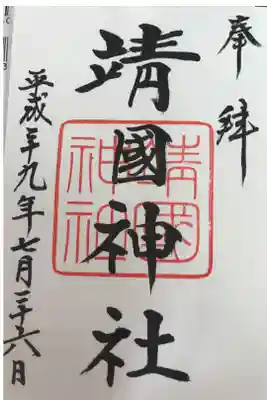 奉拝
靖國神社
靖國神社
平成二十九年七月二十六日